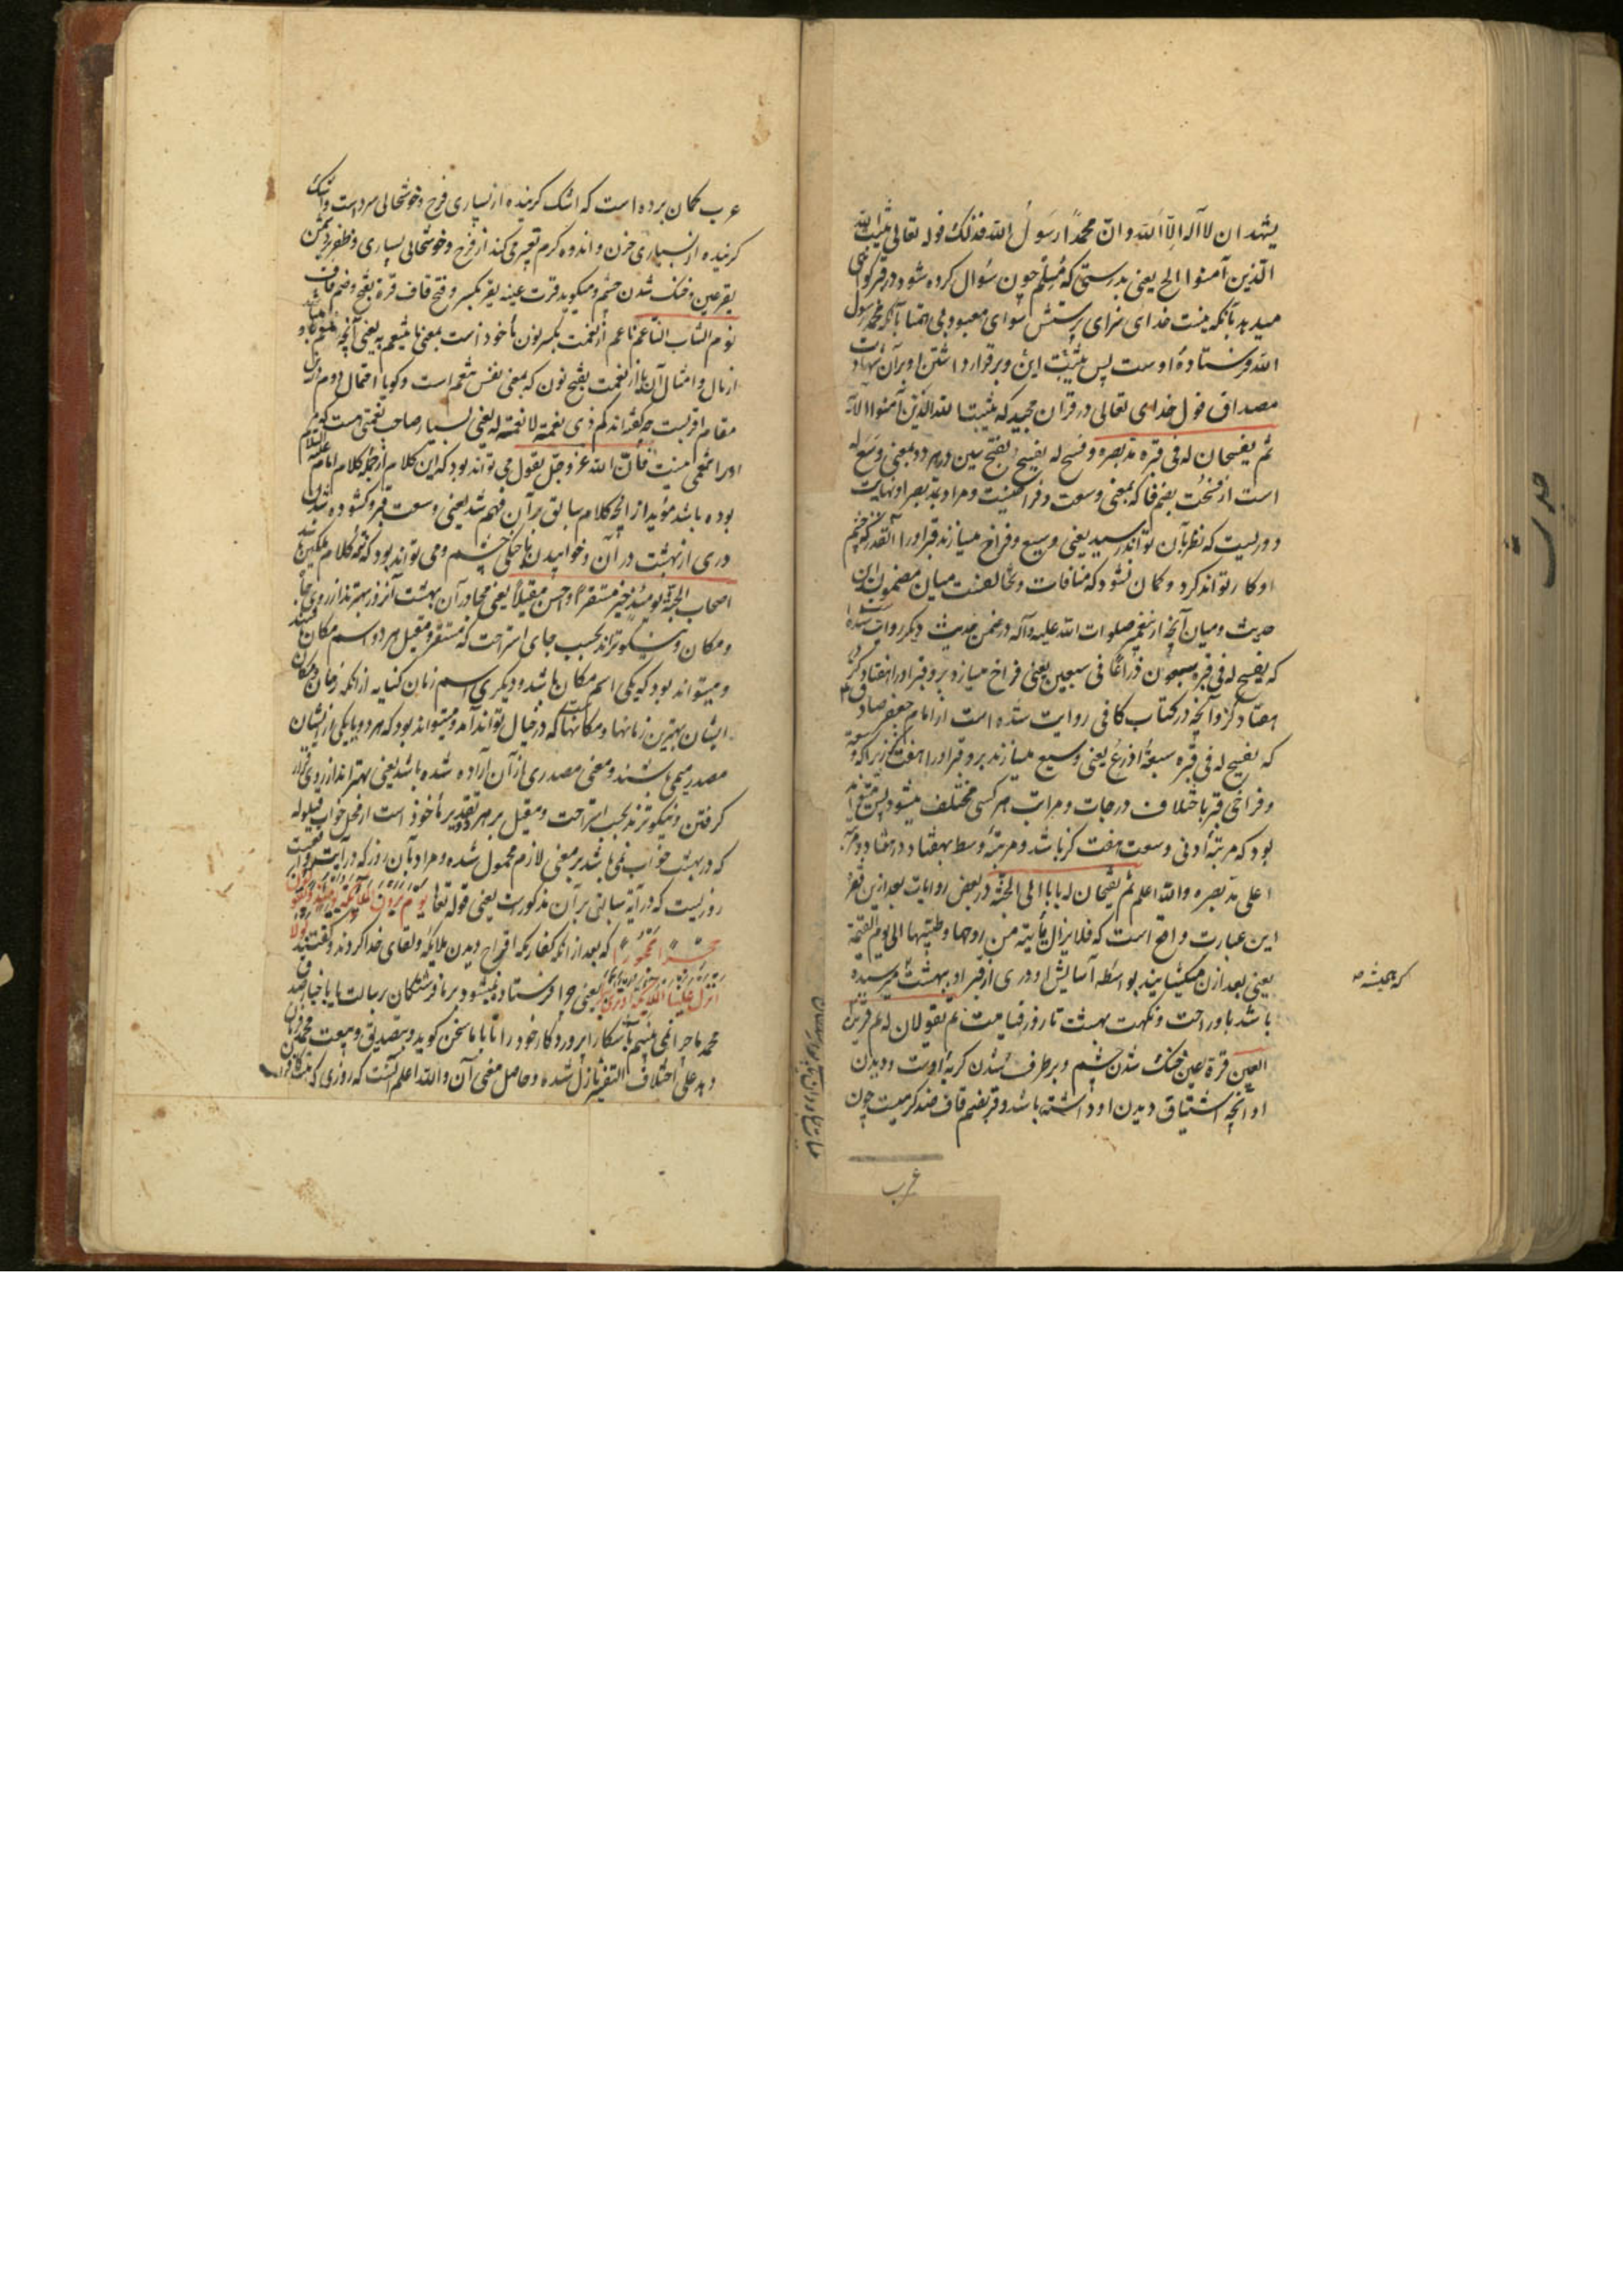 یشهد ان لا آله الّا الله و انّ محمداً رسولُ الله فذلک قوله تعالی یثبت الله
الّذین آمنوا الخ یعنی بدرستی که مُسلم چون سؤال کرده شود در قبر کواهی
میدهد بآنکه نیست خدای سزای پرستش سوای معبود بی همتا بآنکه محمد رسول
الله و فرستادهٔ اوست پس یثبّت این و برقرار داشتن او بر آن شهادت
مصداق قول خدای تعالی در قرآن مجید که یثبت الله الذین آمنوا الآیة
ثم یفسحان له فی قبره مدّ بصره و فسح له یفسح بفتح سین در هر دو بمعنی وسّع له
است از فسحت بضم فا که بمعنی وسعت و فراخیست و مراد بمدّ بصر او نهایت
دوریست که نظر بآن تواند رسید یعنی وسیع و فراخ میسازند قبر او را آنقدر که چشم
او کار تواند کرد و کمان نشود که منافات و مخالفت میان مضمون این
حدیث و میان آنچه از پیغمبر صلوات الله علیه و آله در ضمن حدیث دیکر روایت شده
که یفسح له فی قبره سبعون ذراعًا فی سبعین یعنی فراخ میسازد بر و قبر او را هفتاد کز در
هفتاد کز و آنچه در کتاب کافی روایت شده است از امام جعفر صادق ع
که یفسح له فی قبره سبعة اذرع یعنی وسیع میسازند بر و قبر او را هفت کز زیرا که وسعت
و فراخی قبر باختلاف درجات و مراتب هر کسی مختلف میشود پس میتواند
بود که مرتبهٔ ادنی وسعت هفت کز باشد و مرتبهٔ وسط هفتاد در هفتاد و مرتبهٔ
اعلی مدّ بصره والله اعلم ثم یفتحان له بابا الی الجنّة در بعض روایات بعد ازین فقره
این عبارت واقع است که فلا یزال یأتیه من روحها و طیبها الی یوم القیمة
یعنی بعد از آن میکشایند بواسطه آسایش او دری از قبر او ببهشت میرسیده
که همیشه ص
باشد باو راحت و نکهت بهشت تا روز قیامت ثم یقولان له نم قریر
العین قرة عین خنک شدن چشم و برطرف شدن کریهٔ اوست و دیدن
او آنچه اشتیاق دیدن او داشته باشد و قر بضم قاف ضد کرمیست چون
عرب
عرب کمان برده است که اشک کرینده از بسیاری فرح و خوشحالی سرد است و اشک
کرینده از بسیاری حزن و اندوه کرم تعبیر می کند از فرح و خوشحالی بسیاری و ظفر بر دشمن
بقر عین و خنک شدن چشم و میکوید قرت عینه یقر بکسر و فتح قاف قرة بفتح و ضم قاف
نوم الشاب الناعم ناعم از نعمت بکسر نون مأخوذ است بمعنی ما یتنعم به یعنی آنچه
از مال و امثال آن یا از نعمت بفتح نون که بمعنی نفس تنعم است و کویا احتمال دوم درین
مقام اقربست چه کفته اند کم ذی نعمة لا نعمة له یعنی بسیار صاحب نعمتی هست که
او را تنعمی نیست فانّ الله عزّ وجلّ یقول می تواند بود که این کلام از جملهٔ کلام امام علیه السلام
بوده باشد مؤید از آنچه کلام سابق بر آن فهم شد یعنی وسعت قبر و کشوده شدن
دری از بهشت در آن و خوابیدن با خنکی چشم و می تواند بود که تتمهٔ کلام ملکین باشد
اصحاب الجنّة یومئذٍ خیر مستقراً و احسن مقیلاً یعنی مجاور آن بهشت آنروز بهترند از روی جا
و مکان و نیکوترند بحسب جای استراحت که مستقر و مقیل هر دو اسم مکان
و میتواند بود که یکی اسم مکان باشد و دیکری اسم زمان کنایه از آنکه زمان و مکان
ایشان بهترین زمانها و مکانهاست که در خیال تواند آمد و میتواند بود که هر دو یا یکی از ایشان
مصدر میمی باشند و معنی مصدری از آن اراده شده باشد یعنی بهتراند از روی قرار
کرفتن و نیکوترند بحسب استراحت و مقیل بر هر تقدیر مأخوذ است از
که در بهشت خواب نمی باشد بر معنی لازم محمول شده و مراد بآن روز که در آیت
روزیست که در آیهٔ سابق بر آن مذکورست یعنی قوله تعالی یوم یرون الملائکة
حجراً محجوراً که بعد از آنکه کفار مکه اقتراح دیدن ملایکه و لقای خدا کردند و کفتند لولا
انزل علینا الملائکة او نری ربنا یعنی چرا فرستاده نمیشود بر ما فرشتگان برسالت یا باخبار
محمد یا چرا نمی بینیم آشکارا پروردکار خود را تا با ما سخن کوید و بتصدیق
دهد علی اختلاف التفسیر نازل شده و حاصل معنی آن والله اعلم آنست که روزی که